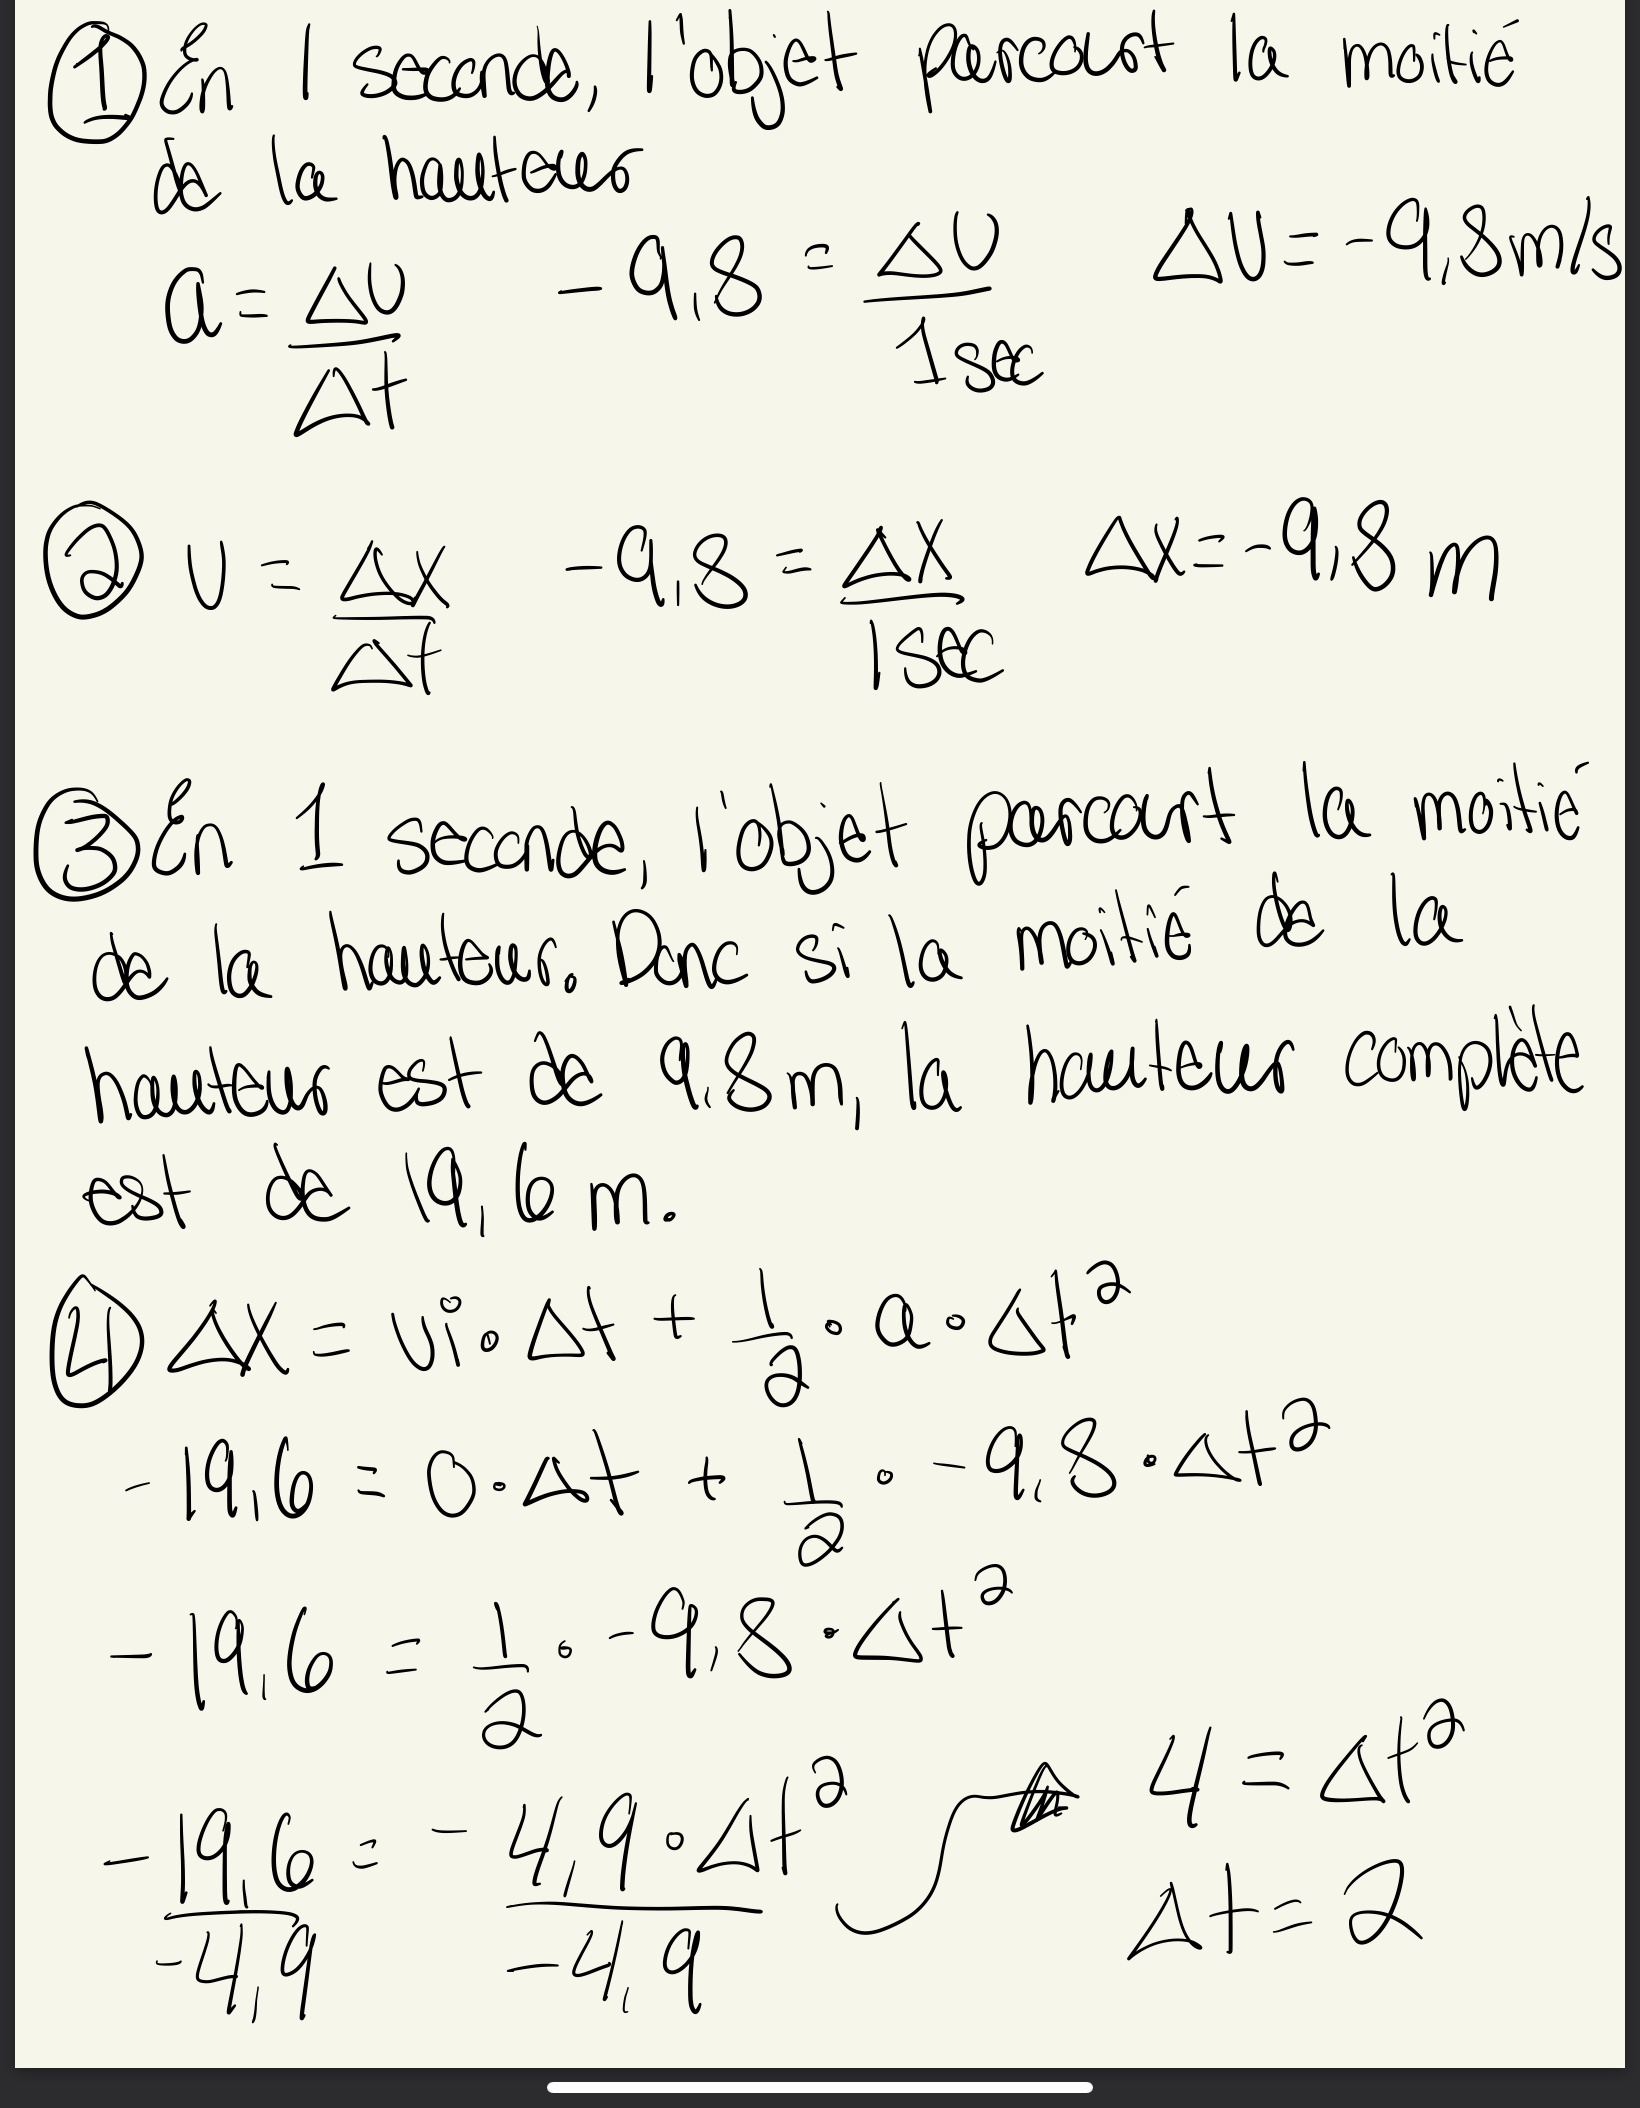 ① En 1 seconde, l'objet parcourt la moitié
de la hauteur
a = Δv/Δt   -9,8 = Δv/1sec   Δv = -9,8m/s
② v = Δx/Δt   -9,8 = Δx/1sec   Δx = -9,8 m
③ En 1 seconde, l'objet parcourt la moitié
de la hauteur. Donc si la moitié de la
hauteur est de 9,8m, la hauteur complète
est de 19,6 m.
④ Δx = vi·Δt + 1/2·a·Δt²
-19,6 = 0·Δt + 1/2·-9,8·Δt²
-19,6 = 1/2·-9,8·Δt²
-19,6/-4,9 = -4,9·Δt²/-4,9
4 = Δt²
Δt = 2